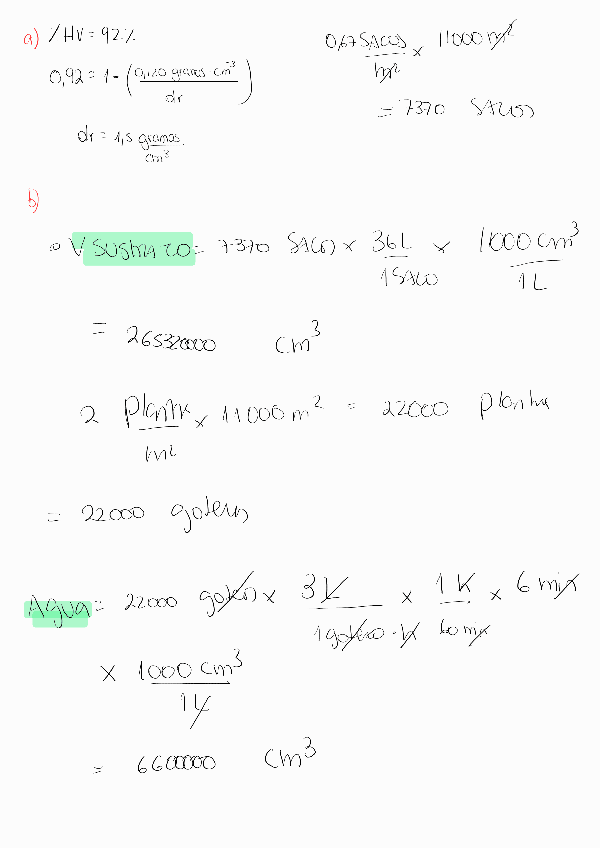 a) % HV = 92%
0,92 = 1 - (0,120 gramos cm^-3 / dr)
dr = 1,5 gramos / cm^3
0,67 SACOS / m^2 × 11000 m^2
= 7370 SACOS
b)
V SUSTRATO = 7370 SACOS × 36L / 1 SACO × 1000 cm^3 / 1L
= 265320000 cm^3
2 Planta / m^2 × 11000 m^2 = 22000 Planta
= 22000 goteros
Agua = 22000 gotero × 3L / 1 gotero · h × 1 h / 60 min × 6 min
× 1000 cm^3 / 1L
= 6600000 cm^3